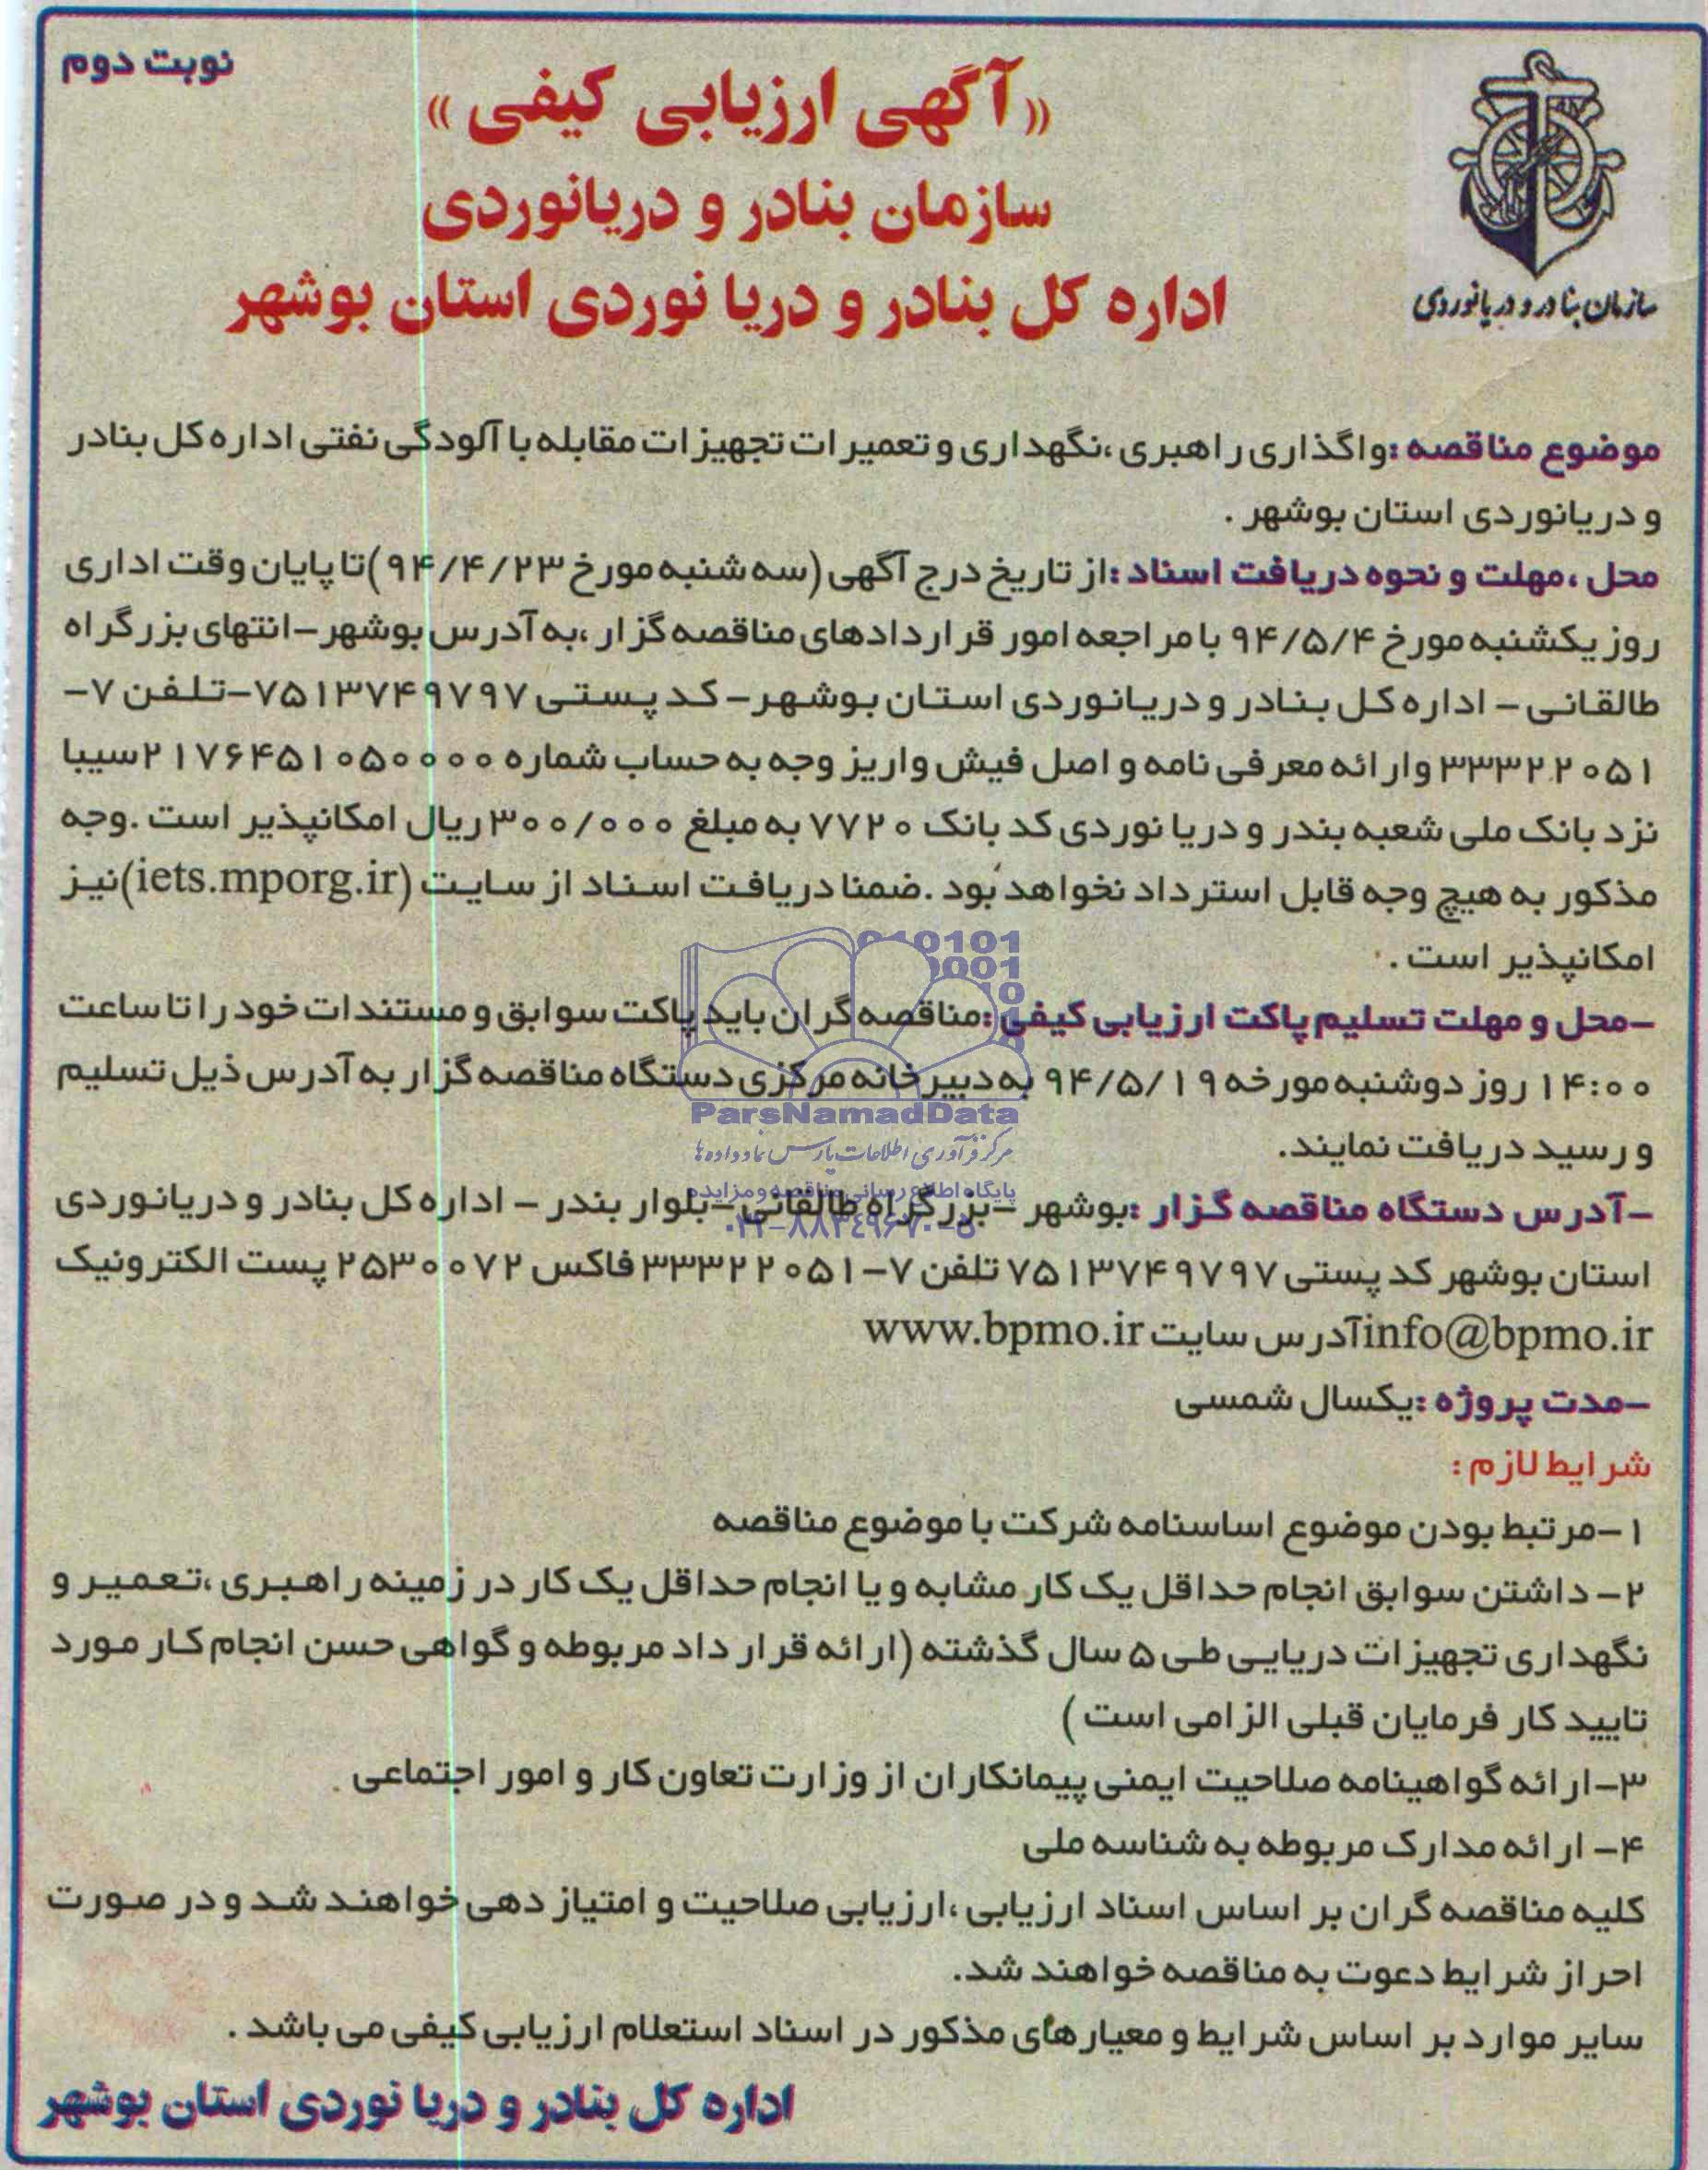 نوبت دوم
«آگهی ارزیابی کیفی»
سازمان بنادر و دریانوردی
اداره کل بنادر و دریا نوردی استان بوشهر
سازمان بنادر و دریانوردی
موضوع مناقصه :واگذاری راهبری ،نگهداری و تعمیرات تجهیزات مقابله با آلودگی نفتی اداره کل بنادر
و دریانوردی استان بوشهر .
محل ،مهلت و نحوه دریافت اسناد :از تاریخ درج آگهی (سه شنبه مورخ ۹۴/۴/۲۳)تا پایان وقت اداری
روز یکشنبه مورخ ۹۴/۵/۴ با مراجعه امور قراردادهای مناقصه گزار ،به آدرس بوشهر-انتهای بزرگراه
طالقانی - اداره کل بنادر و دریانوردی استان بوشهر- کد پستی ۷۵۱۳۷۴۹۷۹۷-تلفن ۷-
۳۳۳۲۲۰۵۱ وارائه معرفی نامه و اصل فیش واریز وجه به حساب شماره ۲۱۷۶۴۵۱۰۵۰۰۰۰سیبا
نزد بانک ملی شعبه بندر و دریا نوردی کد بانک ۷۷۲۰ به مبلغ ۳۰۰/۰۰۰ریال امکانپذیر است .وجه
مذکور به هیچ وجه قابل استرداد نخواهد بود .ضمنا دریافت اسناد از سایت (iets.mporg.ir)نیز
امکانپذیر است .
-محل و مهلت تسلیم پاکت ارزیابی کیفی :مناقصه گران باید پاکت سوابق و مستندات خود را تا ساعت
۱۴:۰۰ روز دوشنبه مورخه ۹۴/۵/۱۹ به دبیرخانه مرکزی دستگاه مناقصه گزار به آدرس ذیل تسلیم
و رسید دریافت نمایند.
-آدرس دستگاه مناقصه گزار :بوشهر -بزرگراه طالقانی-بلوار بندر - اداره کل بنادر و دریانوردی
استان بوشهر کد پستی ۷۵۱۳۷۴۹۷۹۷ تلفن ۷-۳۳۳۲۲۰۵۱ فاکس ۲۵۳۰۰۷۲ پست الکترونیک
info@bpmo.irآدرس سایت www.bpmo.ir
-مدت پروژه :یکسال شمسی
شرایط لازم :
۱-مرتبط بودن موضوع اساسنامه شرکت با موضوع مناقصه
۲- داشتن سوابق انجام حداقل یک کار مشابه و یا انجام حداقل یک کار در زمینه راهبری ،تعمیر و
نگهداری تجهیزات دریایی طی ۵ سال گذشته (ارائه قرار داد مربوطه و گواهی حسن انجام کار مورد
تایید کار فرمایان قبلی الزامی است )
۳-ارائه گواهینامه صلاحیت ایمنی پیمانکاران از وزارت تعاون کار و امور اجتماعی .
۴- ارائه مدارک مربوطه به شناسه ملی
کلیه مناقصه گران بر اساس اسناد ارزیابی ،ارزیابی صلاحیت و امتیاز دهی خواهند شد و در صورت
احراز شرایط دعوت به مناقصه خواهند شد.
سایر موارد بر اساس شرایط و معیارهای مذکور در اسناد استعلام ارزیابی کیفی می باشد .
اداره کل بنادر و دریا نوردی استان بوشهر
ParsNamadData
مرکز فرآوری اطلاعات پارس نماد داده ها
پایگاه اطلاع رسانی مناقصه و مزایده
۰۲۱-۸۸۳٤۹۶۷۰-۵